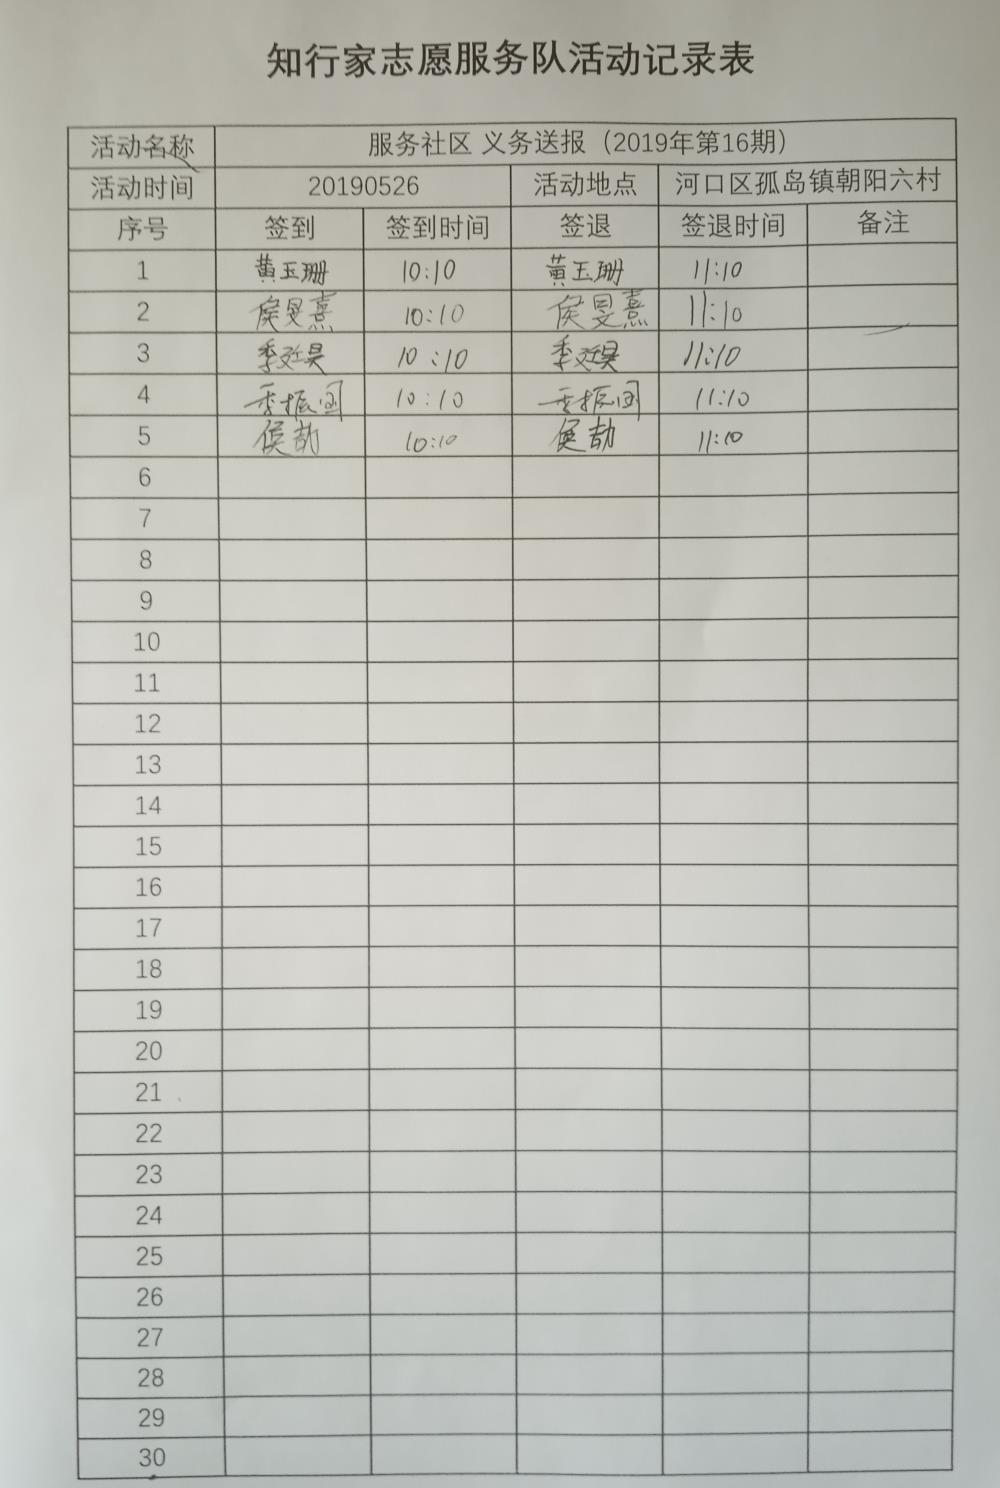 知行家志愿服务队活动记录表
活动名称 服务社区 义务送报（2019年第16期）
活动时间 20190526 活动地点 河口区孤岛镇朝阳六村
序号 签到 签到时间 签退 签退时间 备注
1 黄玉珊 10:10 黄玉珊 11:10
2 侯旻熹 10:10 侯旻熹 11:10
3 季廷昊 10:10 季廷昊 11:10
4 季振国 10:10 季振国 11:10
5 侯劼 10:10 侯劼 11:10
6
7
8
9
10
11
12
13
14
15
16
17
18
19
20
21
22
23
24
25
26
27
28
29
30